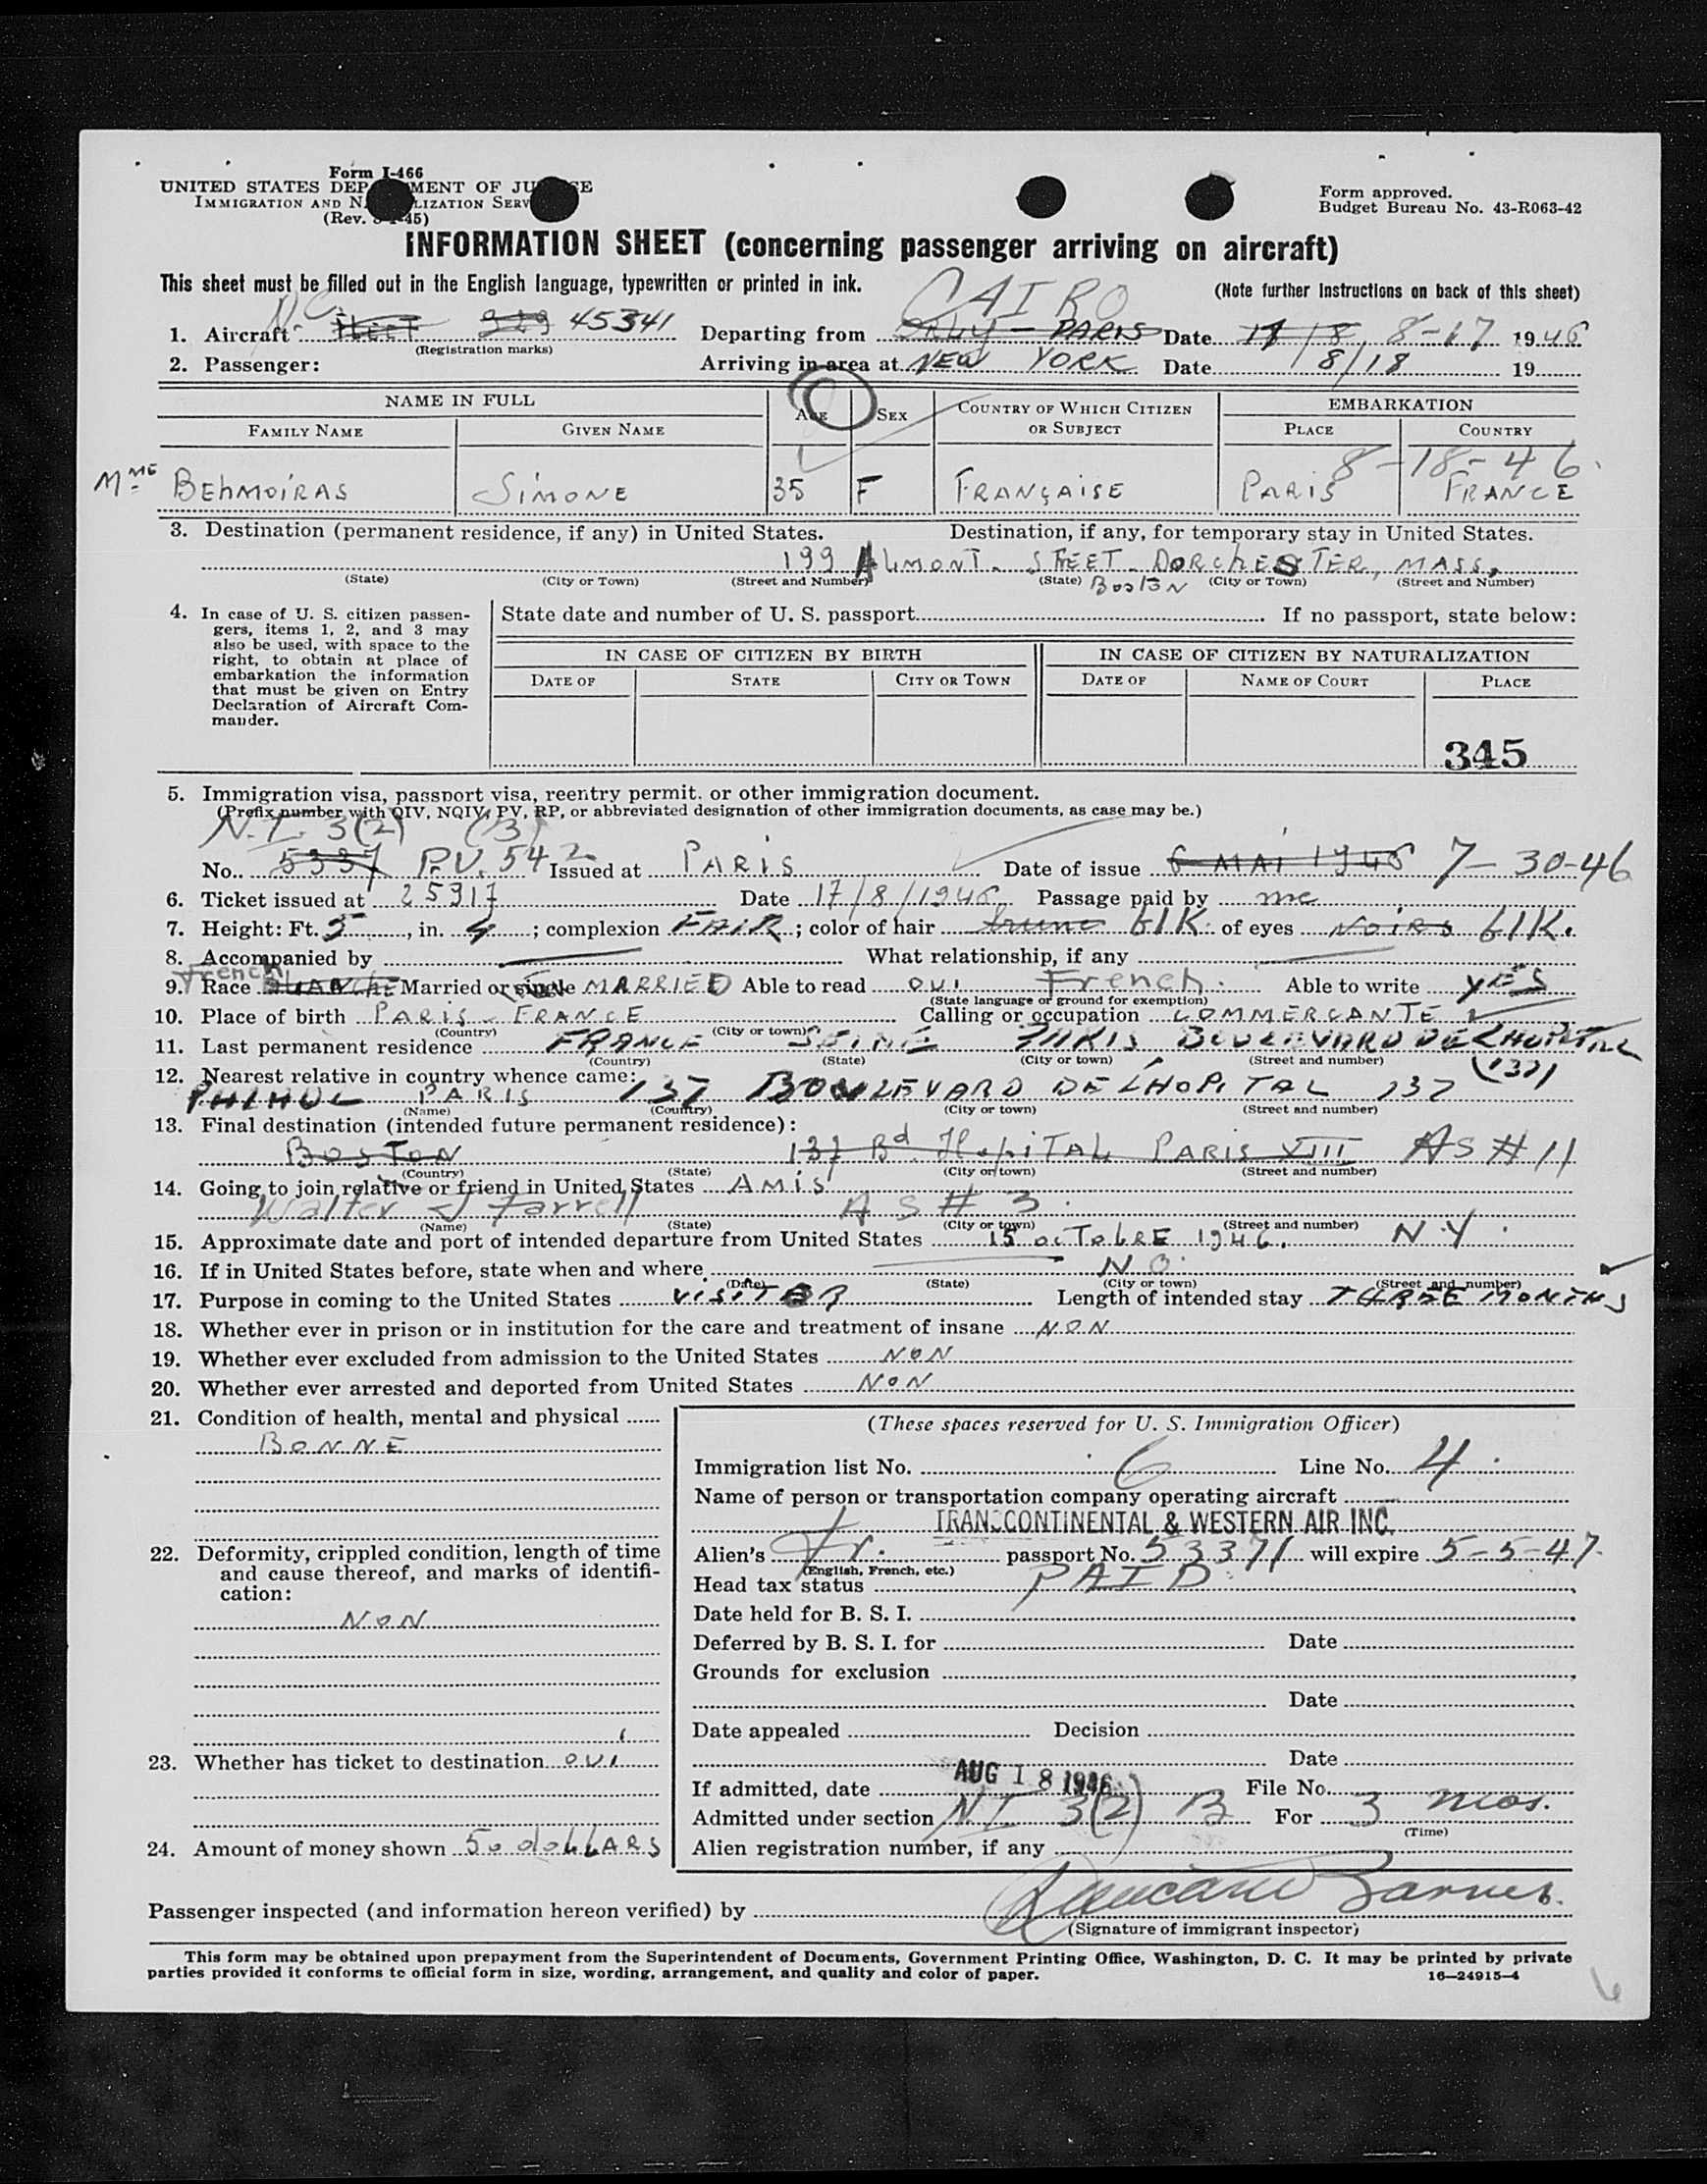 Form I-466
UNITED STATES DEP MENT OF JU E
IMMIGRATION AND N LIZATION SERV
(Rev. 45)
Form approved.
Budget Bureau No. 43-R063-42
INFORMATION SHEET (concerning passenger arriving on aircraft)
This sheet must be filled out in the English language, typewritten or printed in ink.
(Note further instructions on back of this sheet)
CAIRO
NC
1. Aircraft 929 45341 Departing from ORLY - PARIS Date 8-17 1946
(Registration marks)
2. Passenger: Arriving in area at NEW YORK Date 8/18 19
NAME IN FULL AGE SEX COUNTRY OF WHICH CITIZEN OR SUBJECT EMBARKATION
FAMILY NAME GIVEN NAME PLACE COUNTRY
8-18-46.
MME BEHMOIRAS SIMONE 35 F FRANÇAISE PARIS FRANCE
3. Destination (permanent residence, if any) in United States. Destination, if any, for temporary stay in United States.
199 ALMONT. STEET. DORCHESTER, MASS.
(State) (City or Town) (Street and Number) (State) Boston (City or Town) (Street and Number)
4. In case of U. S. citizen passen-
gers, items 1, 2, and 3 may
also be used, with space to the
right, to obtain at place of
embarkation the information
that must be given on Entry
Declaration of Aircraft Com-
mander.
State date and number of U. S. passport If no passport, state below:
IN CASE OF CITIZEN BY BIRTH IN CASE OF CITIZEN BY NATURALIZATION
DATE OF STATE CITY OR TOWN DATE OF NAME OF COURT PLACE
345
5. Immigration visa, passport visa, reentry permit, or other immigration document.
(Prefix number with QIV, NQIV, PV, RP, or abbreviated designation of other immigration documents, as case may be.)
N.I. 3(2) (3)
No. 5337 P.V. 542 Issued at PARIS Date of issue 6 MAI 1946 7-30-46
6. Ticket issued at 25917 Date 17/8/1946 Passage paid by me
7. Height: Ft. 5, in. 4; complexion FAIR; color of hair brune blK. of eyes NOIRS blK.
8. Accompanied by What relationship, if any
French
9. Race BLANCHE Married or single MARRIED Able to read OUI French. Able to write YES
(State language or ground for exemption)
10. Place of birth PARIS - FRANCE Calling or occupation COMMERCANTE
(Country) (City or town)
11. Last permanent residence FRANCE SEINE PARIS BOULEVARD DE LHOPITAL
(Country) (State) (City or town) (Street and number)
(137)
12. Nearest relative in country whence came:
PARIS 137 BOULEVARD DE LHOPITAL 137
(Name) (Country) (City or town) (Street and number)
13. Final destination (intended future permanent residence):
BOSTON 137 Bd. HopiTAL PARIS XIII AS # 11
(Country) (State) (City or town) (Street and number)
14. Going to join relative or friend in United States AMIS
Walter J Farrell AS # 3.
(Name) (State) (City or town) (Street and number)
15. Approximate date and port of intended departure from United States 15 OCTOBRE 1946. N.Y.
16. If in United States before, state when and where NO.
(Date) (State) (City or town) (Street and number)
17. Purpose in coming to the United States Length of intended stay THREE MONTHS
18. Whether ever in prison or in institution for the care and treatment of insane NON
19. Whether ever excluded from admission to the United States NON
20. Whether ever arrested and deported from United States NON
21. Condition of health, mental and physical
BONNE
22. Deformity, crippled condition, length of time
and cause thereof, and marks of identifi-
cation:
NON
23. Whether has ticket to destination OUI
24. Amount of money shown 50 dollARS
(These spaces reserved for U. S. Immigration Officer)
Immigration list No. 6 Line No. 4
Name of person or transportation company operating aircraft
TRANSCONTINENTAL & WESTERN AIR INC.
Alien's Fr. passport No. 53371 will expire 5-5-47.
(English, French, etc.)
Head tax status PAID
Date held for B. S. I.
Deferred by B. S. I. for Date
Grounds for exclusion
Date
Date appealed Decision
Date
If admitted, date AUG 18 1946 File No.
Admitted under section N.I. 3(2) B For 3 mos.
(Time)
Alien registration number, if any
Passenger inspected (and information hereon verified) by
(Signature of immigrant inspector)
This form may be obtained upon prepayment from the Superintendent of Documents, Government Printing Office, Washington, D. C. It may be printed by private
parties provided it conforms to official form in size, wording, arrangement, and quality and color of paper.
16—24915-4
6